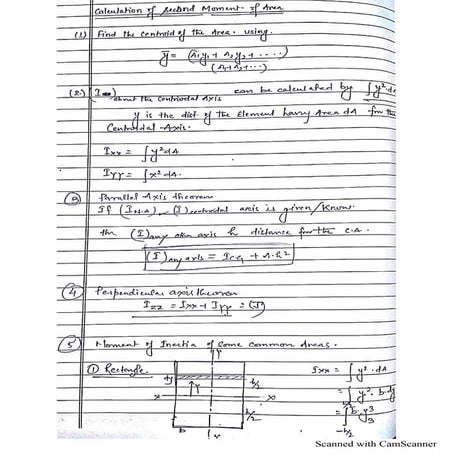 Calculation of second Moment of Area
(1) Find the centroid of the Area. using
ȳ = (A₁y₁ + A₂y₂ + ....)
(A₁+A₂+...)
(2) (I) can be calculated by ∫y²dA
about the Centroidal Axis
y is the dist of the Element having Area dA from the
Centroidal Axis.
Ixx = ∫y²dA
Iyy = ∫x²dA.
(3) Parallel Axis theorem
If (IN.A) (I)centroidal axis is given/known.
the (I)any other axis h distance from the C.A.
(I)any axis = ICG + A.h²
(4) Perpendicular axis theorem
Izz = Ixx + Iyy = (J)
(5) Moment of Inertia of some common Areas.
(1) Rectangle. Ixx = ∫y².dA
y
dy h/2 ∫y².b.dy
x y x
h/2 ∫b.y³/3
b y -h/2
Scanned with CamScanner